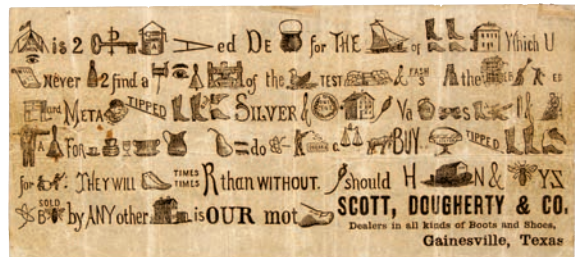 is 2 ed DE for THE of Which U
Never 2 find a of the TEST & FASH S the ER ED
and META TIPPED SILVER & Va s
A For = do c. BUY. TIPPED
for THEY WILL TIMES TIMES R than WITHOUT. should H N & YS
SOLD B by ANY other is OUR mot
SCOTT, DOUGHERTY & CO.
Dealers in all kinds of Boots and Shoes,
Gainesville, Texas